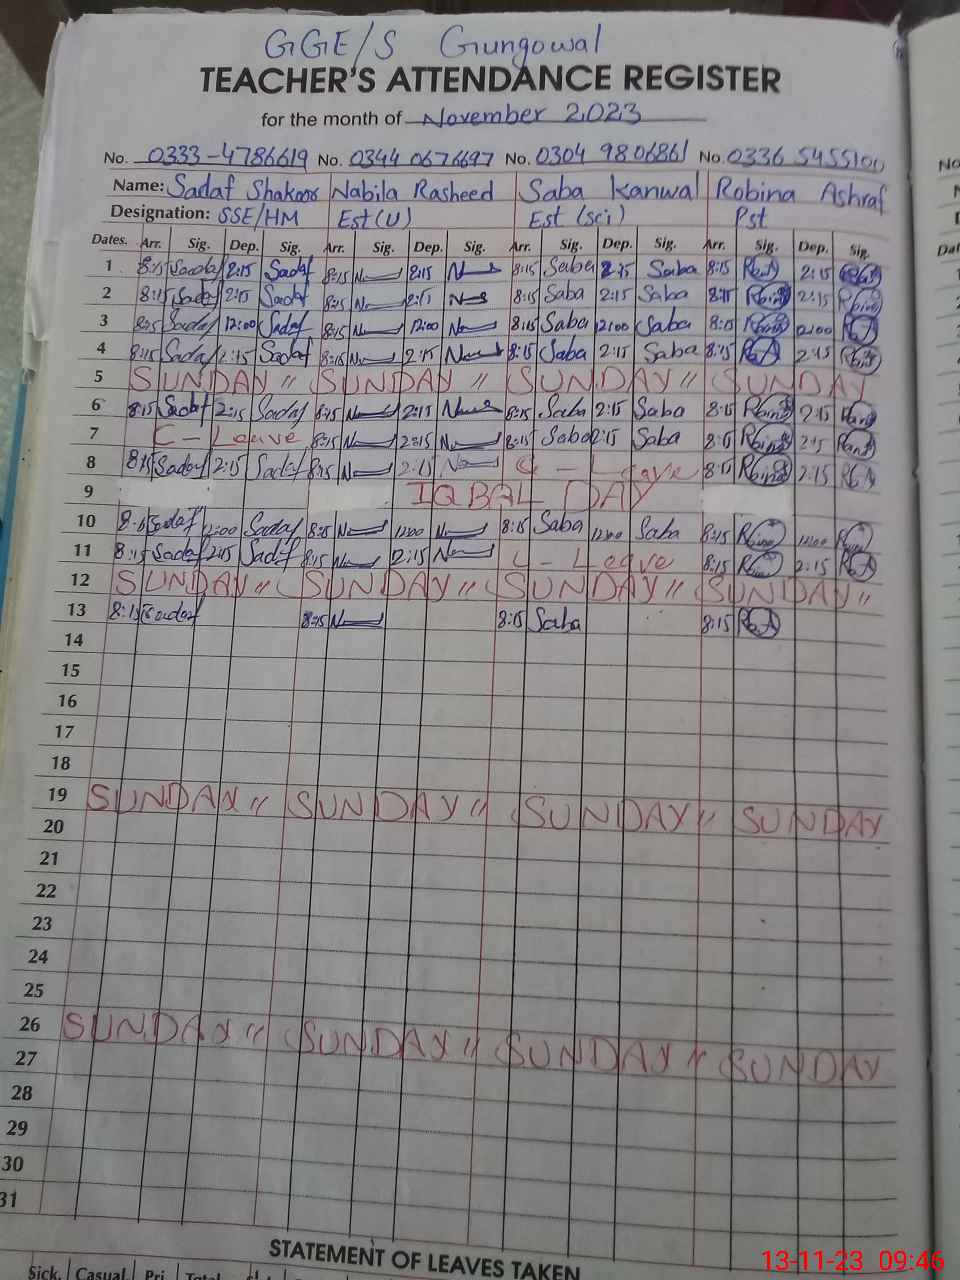 GGE/S Gungowal
TEACHER'S ATTENDANCE REGISTER
for the month of November 2023
No. 0333-4786619 No. 0344 0676697 No. 0304 9806861 No. 0336 5455100
Name: Sadaf Shakoor Nabila Rasheed Saba Kanwal Robina Ashraf
Designation: SSE/HM Est(U) Est (sci) Pst
Dates. Arr. Sig. Dep. Sig. Arr. Sig. Dep. Sig. Arr. Sig. Dep. Sig. Arr. Sig. Dep. Sig.
1 8:15 Sadaf 2:15 Sadaf 8:15 2:15 8:15 Saba 2:15 Saba 8:15 2:15
2 8:15 Sadaf 2:15 Sadaf 8:15 2:15 8:15 Saba 2:15 Saba 8:15 2:15
3 8:15 Sadaf 12:00 Sadaf 8:15 12:00 8:15 Saba 12:00 Saba 8:15 12:00
4 8:15 Sadaf 2:15 Sadaf 8:15 2:15 8:15 Saba 2:15 Saba 8:15 2:15
5 SUNDAY " SUNDAY " SUNDAY " SUNDAY
6 8:15 Sadaf 2:15 Sadaf 8:15 2:15 8:15 Saba 2:15 Saba 8:15 2:15
7 C - Leave 8:15 2:15 8:15 Saba 2:15 Saba 8:15 2:15
8 8:15 Sadaf 2:15 Sadaf 8:15 2:15 C - Leave 8:15 2:15
9 IQBAL DAY
10 8:15 Sadaf 12:00 Sadaf 8:15 12:00 8:15 Saba 12:00 Saba 8:15 12:00
11 8:15 Sadaf 2:15 Sadaf 8:15 2:15 C - Leave 8:15 2:15
12 SUNDAY " SUNDAY " SUNDAY " SUNDAY "
13 8:15 Sadaf 8:15 8:15 Saba 8:15
14
15
16
17
18
19 SUNDAY " SUNDAY " SUNDAY " SUNDAY
20
21
22
23
24
25
26 SUNDAY " SUNDAY " SUNDAY " SUNDAY
27
28
29
30
31
STATEMENT OF LEAVES TAKEN
Sick. Casual Pri Total
13-11-23 09:46